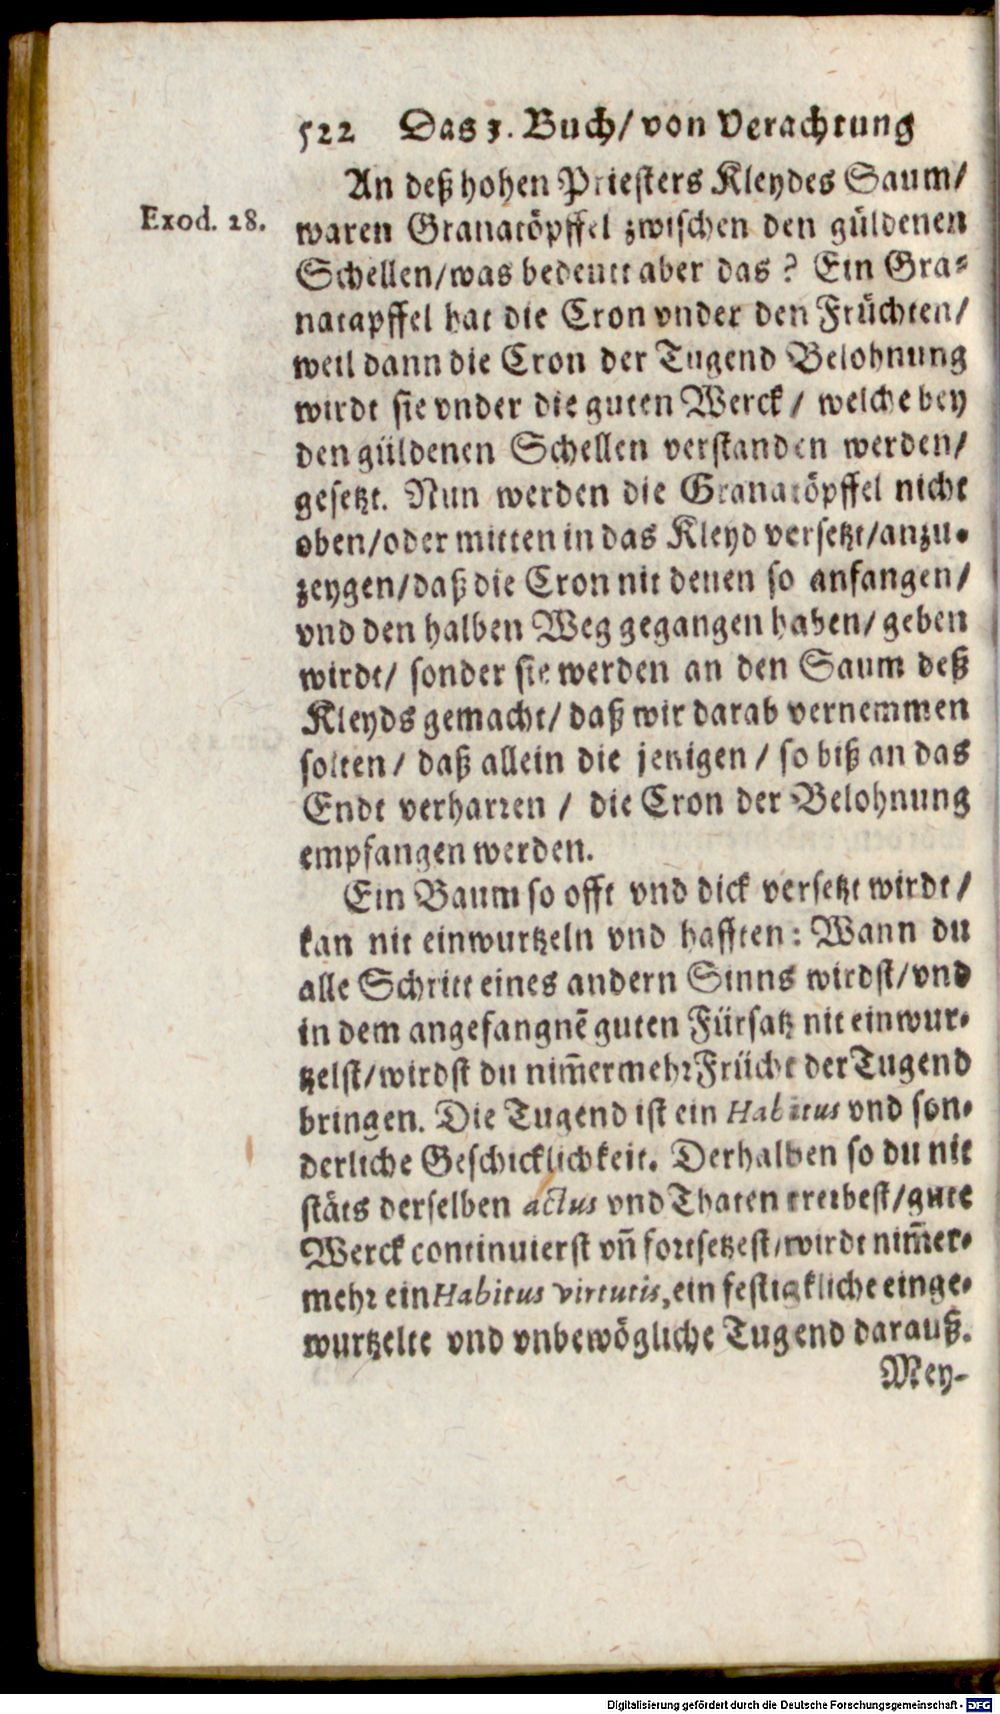 522 Das 3. Buch/ von Verachtung
An deß hohen Priesters Kleydes Saum/
Exod. 28.
waren Granatöpffel zwischen den güldenen
Schellen/was bedeutt aber das? Ein Gra-
natapffel hat die Cron vnder den Früchten/
weil dann die Cron der Tugend Belohnung
wirdt sie vnder die guten Werck/ welche bey
den güldenen Schellen verstanden werden/
gesetzt. Nun werden die Granatöpffel nicht
oben/oder mitten in das Kleyd versetzt/anzu-
zeygen/daß die Cron nit denen so anfangen/
vnd den halben Weg gegangen haben/ geben
wirdt/ sonder sie werden an den Saum deß
Kleyds gemacht/ daß wir darab vernemmen
solten/ daß allein die jenigen/ so biß an das
Endt verharren/ die Cron der Belohnung
empfangen werden.
Ein Baum so offt vnd dick versetzt wirdt/
kan nit einwurtzeln vnd hafften: Wann du
alle Schritt eines andern Sinns wirdst/vnd
in dem angefangnẽ guten Fürsatz nit einwur-
tzelst/wirdst du nim̃ermehr Frücht der Tugend
bringen. Die Tugend ist ein Habitus vnd son-
derliche Geschicklichkeit. Derhalben so du nit
stäts derselben actus vnd Thaten treibest/gute
Werck continuierst vñ fortsetzest/wirdt nim̃er-
mehr ein Habitus virtutis, ein festigkliche einge-
wurtzelte vnd vnbewögliche Tugend darauß.
Mey-
Digitalisierung gefördert durch die Deutsche Forschungsgemeinschaft - DFG